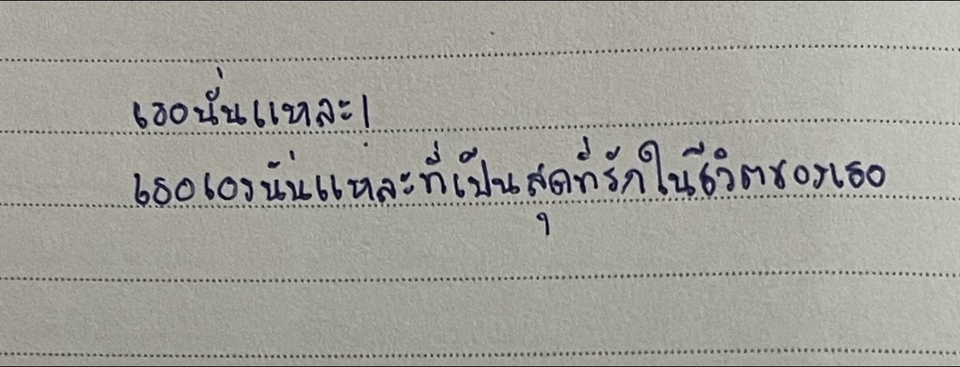 เธอนั่นแหละ!
เธอเองนั่นแหละที่เป็นสุดที่รักในชีวิตของเธอ